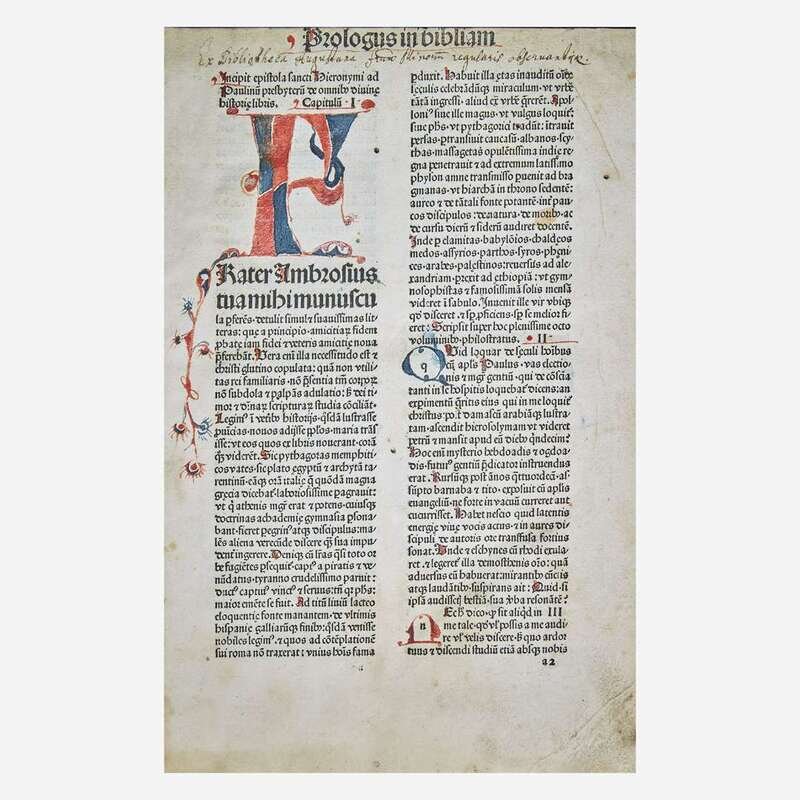 Prologus in bibliam
Ex Bibliotheca Augustana Frum Minorum regularis observantiæ.
Incipit epistola sancti Hieronymi ad
Paulinū presbyterū de omnibꝰ diuine
historie libris. Capitulū I
F
Rater Ambrosius
tua mihi munuscu
la ꝑferēs. detulit simul ⁊ suauissimas lit-
teras: que a principio amicitiarꝫ fidem
ꝓbate iam fidei ⁊ veteris amicitie noua
p̄ferebāt. Uera em̄ illa necessitudo est ⁊
christi glutino copulata: quā non vtili-
tas rei familiaris. nō p̄sentia tm̄ corporꝫ
nō subdola ⁊ palpās adulatio: sꝫ dei ti-
mor ⁊ diuinarꝫ scripturarꝫ studia cōciliāt.
Legimꝰ ī veteribꝰ historijs. q̄sdā lustrasse
ꝓuincias. nouos adijsse pp̄los. maria trās
isse: vt eos quos ex libris nouerant. corā
qꝫ viderēt. Sic pythagoras memphiti-
cos vates. sic plato egyptū ⁊ archytā taren-
tinū. eandēqꝫ orā italie. q̄ quōdā magna
grecia dicebatᷣ. laboriosissime pagrauit:
vt q̄ athenis mgr̄ erat ⁊ potens. cuiusqꝫ
doctrinas achademie gymnasia ꝑsona-
bant. fieret pegrinꝰ atqꝫ discipulus: ma-
lēs aliena verecūde discere qꝫ sua impu
dentᷣ ingerere. Deniqꝫ cū lr̄as q̄si toto or
be fugiētes ꝑsequitᷣ. captꝰ a piratis ⁊ ve-
nūdatus. tyranno crudelissimo paruit:
ductꝰ captiuꝰ vinctꝰ ⁊ seruus: tn̄ qꝛ ph̄s:
maior emēte se fuit. Ad titū liuiū lacteo
eloquentie fonte manantem. de vltimis
hispanie galliarūqꝫ finibꝰ. q̄sdā venisse
nobiles legimꝰ. ⁊ quos ad cōtēplationē
sui roma nō traxerat: vnius hoīs fama
ꝑduxit. Habuit illa etas inauditū oībꝰ
seculis celebrādūqꝫ miraculum. vt vrbē
tātā ingressi. aliud ex vrbē q̄rerēt. Apol-
loniꝰ siue ille magus. vt vulgus loquitᷣ:
siue ph̄s. vt pythagorici tradūt: itrauit
persas. ꝑtransiuit caucasū. albanos. scy-
thas. massagetas. opulētissima indie re-
gna penetrauit ⁊ ad extremum latissimo
physon amne transmisso ꝑuenit ad bra
gmanas. vt hiarchā in throno sedentē:
aureo ⁊ de tātali fonte potantē. int̄ pau
cos discipulos: de natura. de moribꝰ. ac
de cursu dierū ⁊ siderū audiret docentē.
Inde ꝑ elamitas. babylōios. chaldeos
medos. assyrios. parthos. syros. pheni-
ces. arabes. palestinos: reuersus ad ale-
xandriam. ꝑrexit ad ethiopiā: vt gym-
nosophistas ⁊ famosissimā solis mensā
videret ī sabulo. Inuenit ille vir vbiqꝫ
qd̄ disceret. ⁊ sp̄ ꝓficiens. sp̄ se melior fi-
eret: Scripsit super hoc plenissime octo
voluminibꝰ. philostratus. II
q
Uid loquar de seculi hoībus
cū apl̄s Paulus. vas electio
nis ⁊ mgr̄ gentiū. qui de cōscia
tanti in se hospitis loquebatᷣ. dicens: an
experimentū q̄ritis eius qui in me loquitᷣ
christus. post damascū arabiāqꝫ lustra-
tam. ascendit hierosolymam vt videret
petrū ⁊ mansit apud eū diebꝰ quindecim.
Hoc em̄ mysterio hebdoadis ⁊ ogdoa-
dis. futurꝰ gentiū p̄dicator instruendus
erat. Rursūqꝫ post ānos q̄ttuordecī. as-
sūpto barnaba ⁊ tito. exposuit cū apl̄is
euangeliū. ne forte in vacuū curreret aut
cucurrisset. Habet nescio quid latentis
energie viue vocis actus. ⁊ in aures di-
scipuli de autoris ore transfusa fortius
sonat. Unde ⁊ eschynes cū rhodi exula-
ret. ⁊ legeretᷣ illa demosthenis oīo: quā
aduersus eū habuerat: mirantibꝰ cūctis
atqꝫ laudātibꝰ. suspirans ait: Quid. si
ipsā audissetꝫ bestiā. sua v̄ba resonātē?
n
Ec h̄ dico. ꝙ sit aliqd̄ in III
me tale. qd̄ vꝉ possis a me audi
re vꝉ velis discere. sꝫ quo ardor
tuus ⁊ discendi studiū etiā absqꝫ nobis
a2